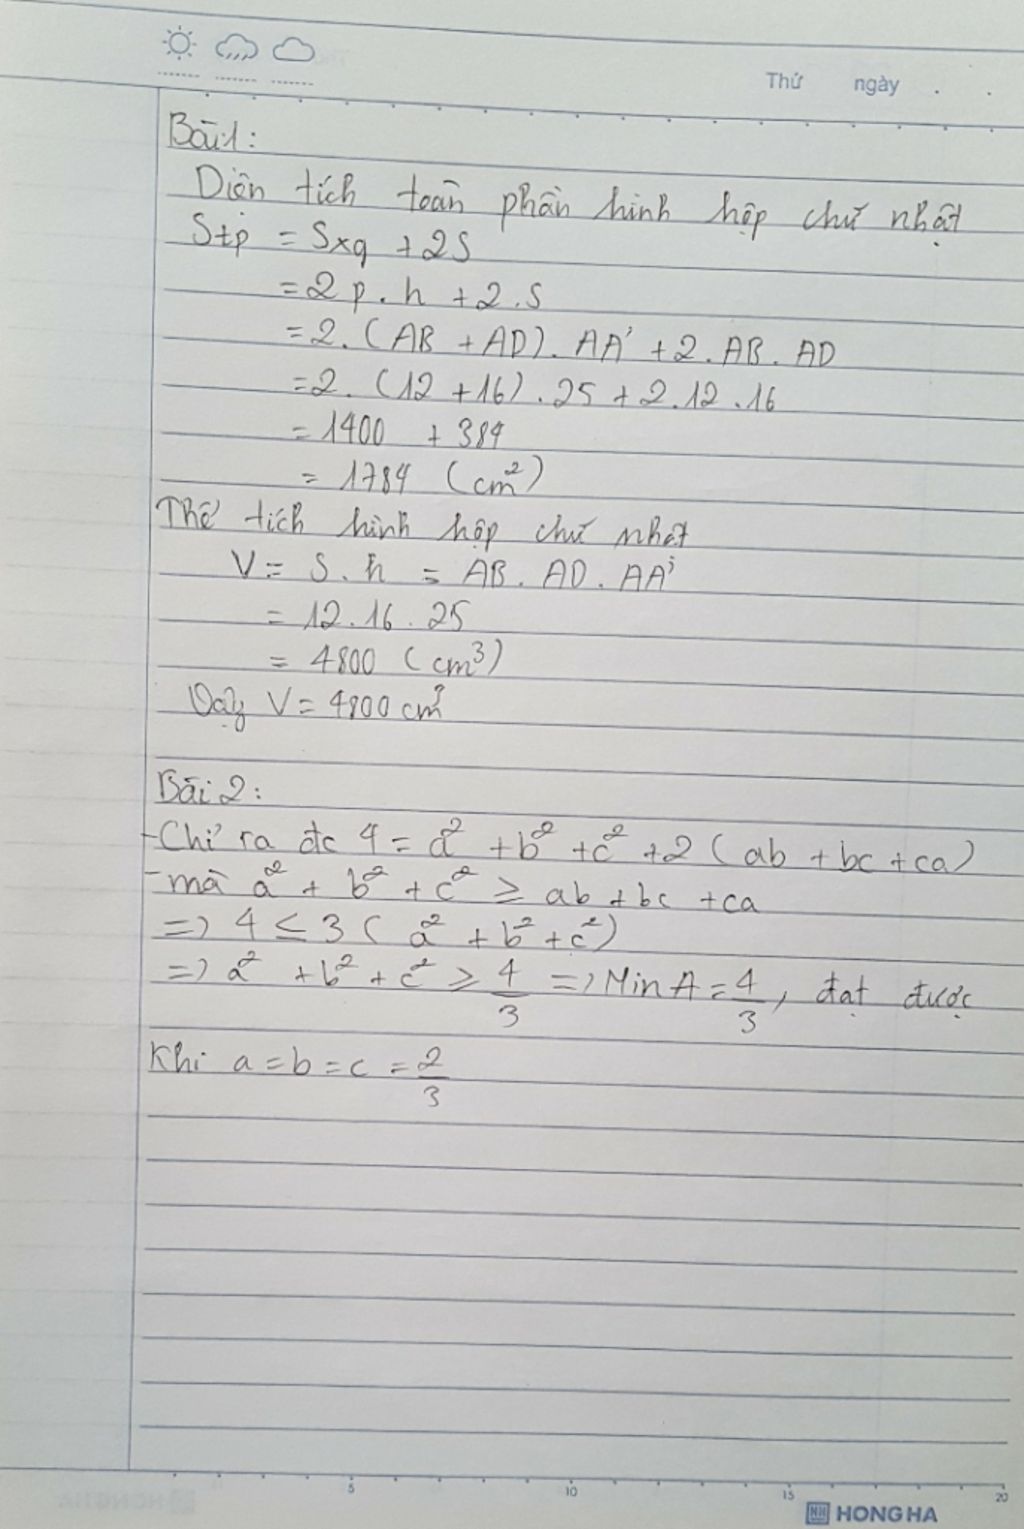 Thứ ngày . .
Bài 1:
Diện tích toàn phần hình hộp chữ nhật
Stp = Sxq + 2S
= 2p.h + 2.S
= 2.(AB + AD). AA' + 2. AB. AD
= 2. (12 + 16) . 25 + 2.12.16
= 1400 + 384
= 1784 (cm²)
Thể tích hình hộp chữ nhật
V = S.h = AB. AD. AA'
= 12.16.25
= 4800 (cm³)
Vậy V = 4800 cm³
Bài 2:
-Chỉ ra đc 4 = a² + b² + c² + 2 (ab + bc + ca)
-mà a² + b² + c² ≥ ab + bc + ca
=> 4 ≤ 3 (a² + b² + c²)
=> a² + b² + c² ≥ 4/3 => Min A = 4/3, đạt được
Khi a = b = c = 2/3
5 10 15 20
HONG HA